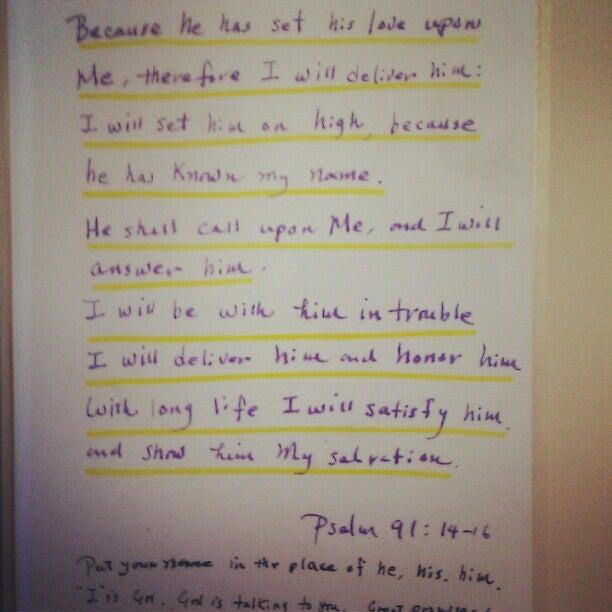 Because he has set his love upon
Me, therefore I will deliver him:
I will set him on high, because
he has known my name.
He shall call upon Me, and I will
answer him.
I will be with him in trouble
I will deliver him and honor him
With long life I will satisfy him.
and show him My salvation.
Psalm 91:14-16
Put your name in the place of he, his, him.
"I" is God. God is talking to you. Great promises